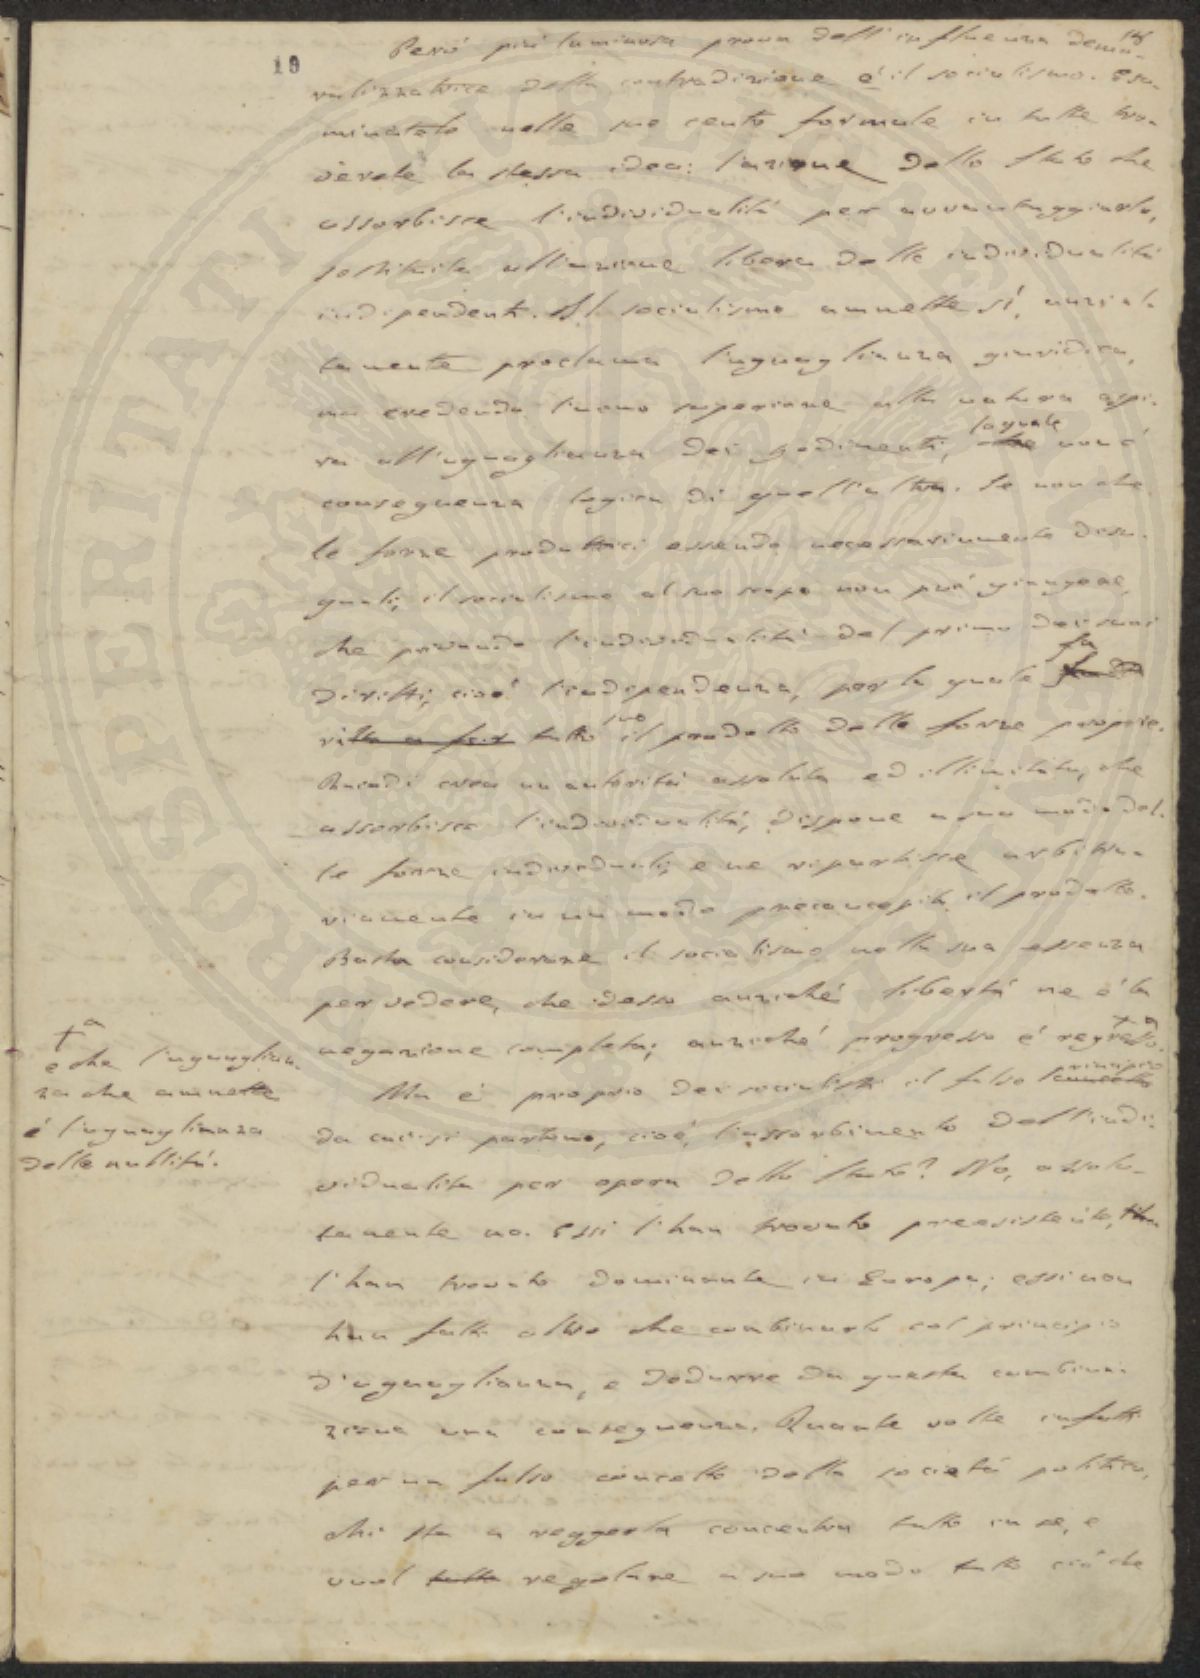 10
Però più luminosa prova dell'influenza demo-
ralizzatrice della contradizione è il socialismo. Esa-
minatelo nelle sue cento formule in tutte tro-
verete la stessa idea: l'azione dello Stato che
assorbisce l'individualità per avvantaggiarla,
sostituita all'azione libera delle individualità
indipendenti. Il socialismo ammette sì, anzi al-
tamente proclama l'uguaglianza giuridica,
ma credendo l'uomo superiore alla natura aspi-
ra all'uguaglianza dei godimenti, la quale non è
conseguenza logica di quell'altra. Se non che
le forze produttrici essendo necessariamente disu-
guali, il socialismo al suo scopo non può giungere,
che privando l'individualità del primo dei suoi
diritti, cioè l'indipendenza, per la quale fa
suo il prodotto delle forze proprie.
Quindi crea un autorità assoluta ed illimitata, che
assorbisce l'individualità, dispone a suo modo del-
le forze individuali, e ne ripartisce arbitra-
riamente in un modo preconcepito il prodotto.
Basta considerare il socialismo nella sua essenza
per vedere, che desso anziché libertà ne è la
negazione completa; anziché progresso è regresso. +a
+a
e che l'uguaglian-
za che ammette
è l'uguaglianza
delle nullità.
Ma è proprio dei socialisti il falso principio
da cui si partono, cioè, l'assorbimento dell'indi-
vidualità per opera dello Stato? No, assolu-
tamente no. Essi l'han trovato preesistente,
l'han trovato dominante in Europa; essi non
han fatto altro che combinarlo col principio
d'uguaglianza, e dedurre da questa combina-
zione una conseguenza. Quante volte infatti
per un falso concetto della società politica,
chi sta a reggerla concentra tutto in se, e
vuol tutto regolare a suo modo tutto ciò che